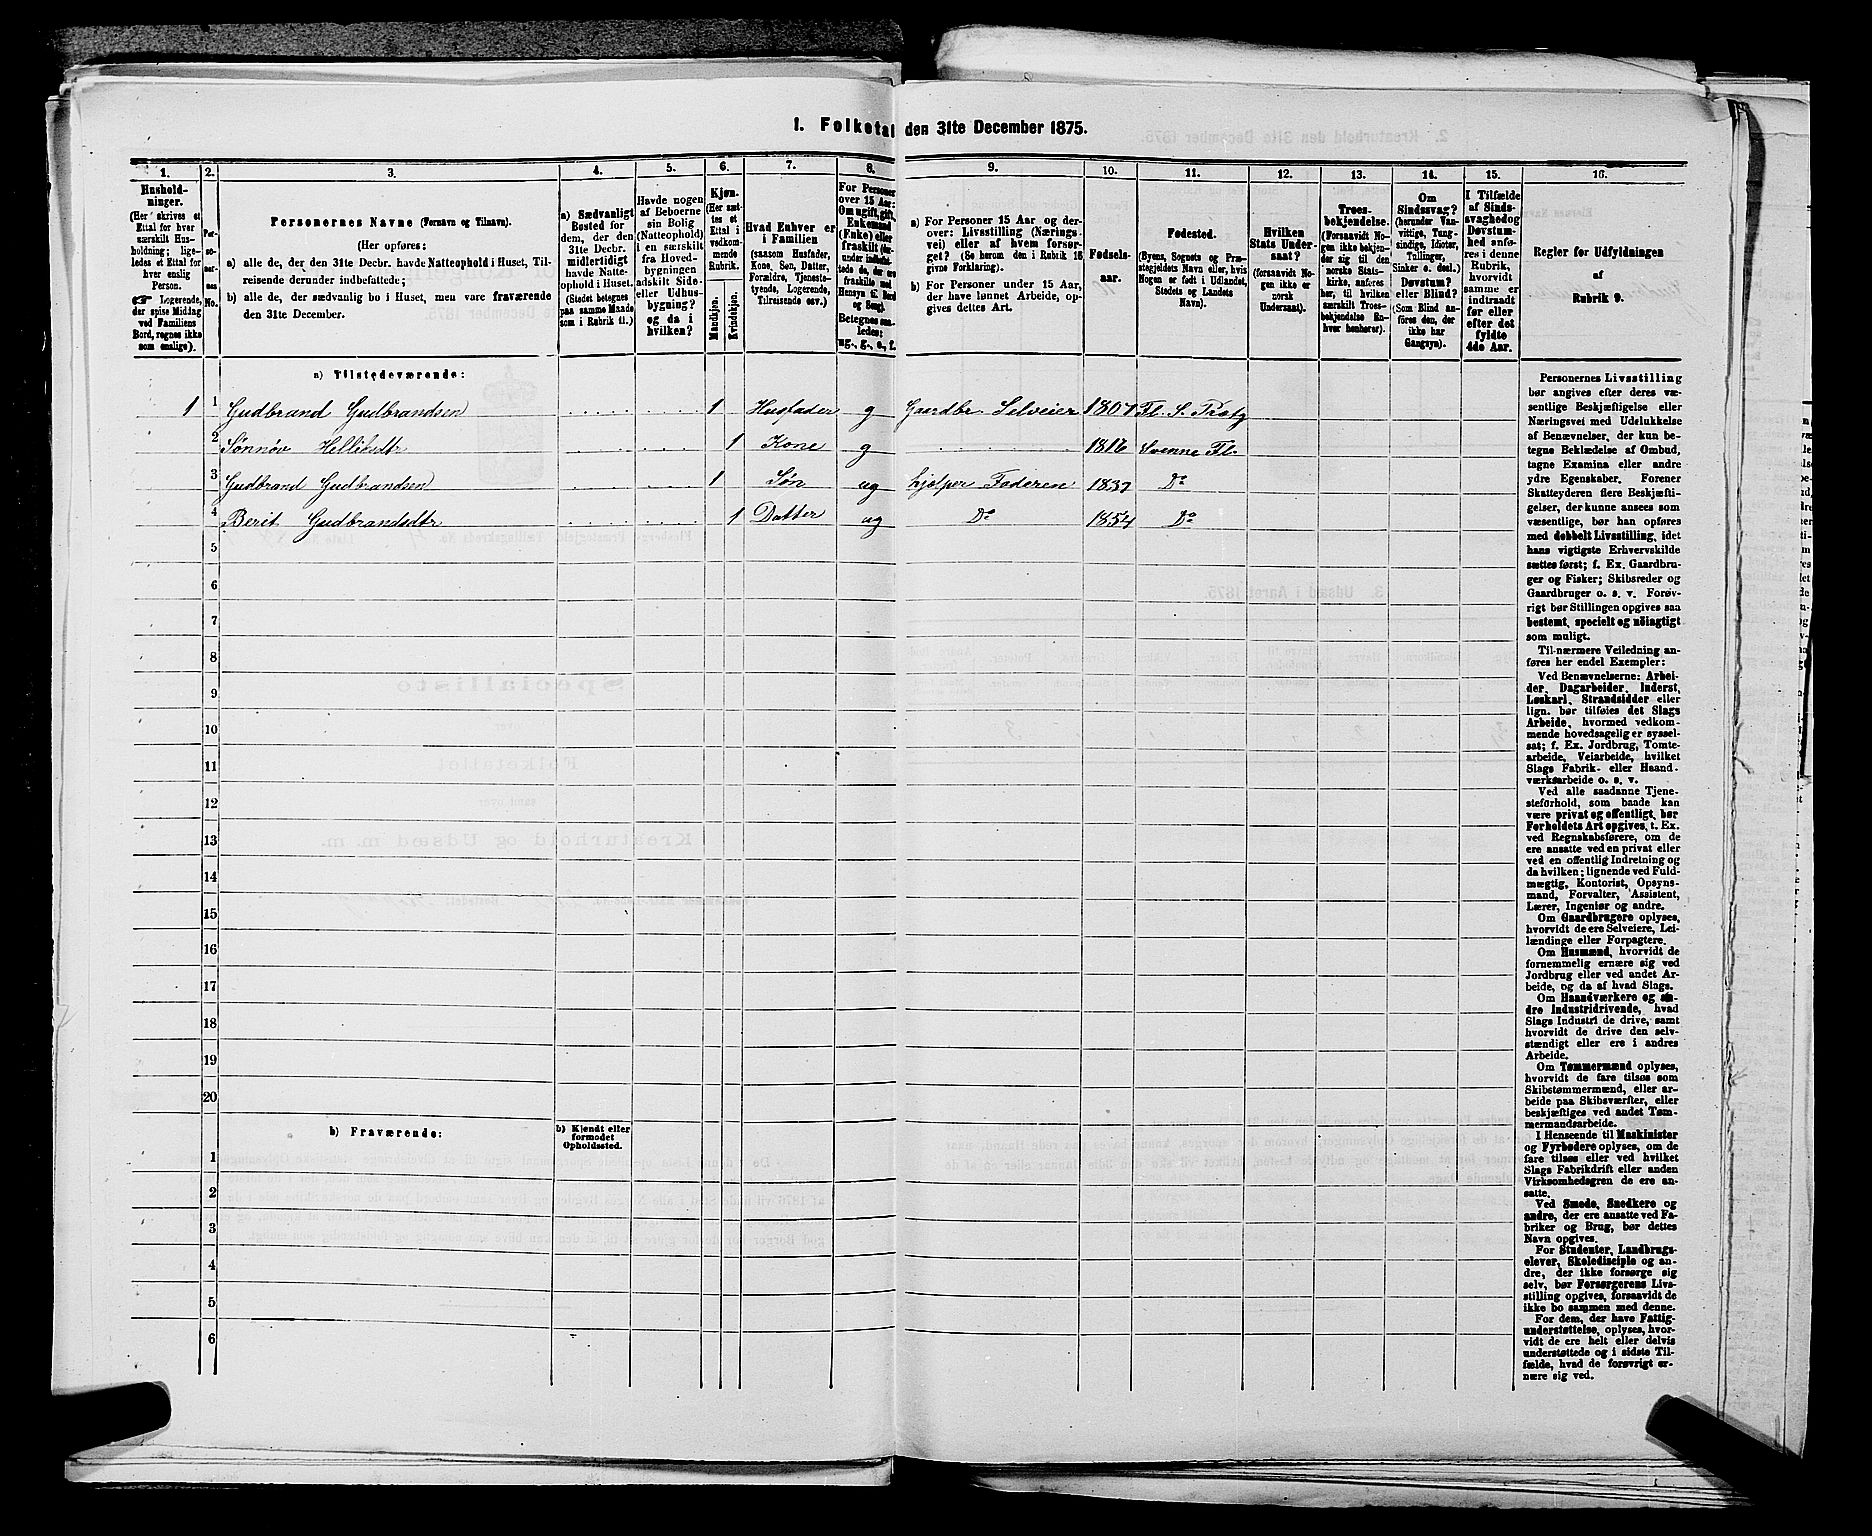 1. Folketal den 31te December 1875.
1.
2.
3.
4.
5.
6.
7.
8.
9.
10.
11.
12.
13.
14.
15.
16.
Hushold-
ninger.
(Her skrives et
Ettal for hver
særskilt Hus-
holdning; lige-
ledes et Ettal for
hver enslig
Person.
☞ Logerende,
der spise Middag
ved Familiens
Bord, regnes ikke
som enslige).
Per-
so-
ner-
nes
No.
Personernes Navne (Fornavn og Tilnavn).
(Her opføres:
a) alle de, der den 31te Decbr. havde Natteophold i Huset, Til-
reisende derunder indbefattede;
b) alle de, der sædvanlig bo i Huset, men vare fraværende
den 31te December.
a) Sædvanligt
Bosted for
dem, der den
31te Decbr.
midlertidigt
havde Natte-
ophold i Huset.
(Stedet betegnes
paa samme Maade
som i Rubrik 11.)
Havde nogen
af Beboerne
sin Bolig
(Natteophold)
i en særskilt
fra Hoved-
bygningen
adskilt Side-
eller Udhus-
bygning?
og da i
hvilken?
Kjøn.
(Her sæt-
tes et
Ettal i
vedkom-
mende
Rubrik.
Mandkjøn.
Kvindekjøn.
Hvad Enhver er
i Familien
(saasom Husfader,
Kone, Søn, Datter,
Forældre, Tjeneste-
tyende, Logerende,
Tilreisende osv.)
For Personer
over 15 Aar:
Om ugift, gift,
Enkemand
(Enke) eller
fraskilt
Betegnes saa-
ledes:
ug., g., e., f.
a) For Personer 15 Aar og der-
over: Livsstilling (Nærings-
vei) eller af hvem forsør-
get? (Se herom den i Rubrik 16
givne Forklaring).
b) For Personer under 15 Aar,
der have lønnet Arbeide, op-
gives dettes Art.
Fødsels-
aar.
Fødested.
(Byens, Sognets og Præ-
stegjeldets Navn eller, hvis
Nogen er født i Udlandet,
Stedets og Landets
Navn).
Hvilken
Stats Under-
saat?
(forsaavidt No-
gen ikke er
norsk
Undersaat).
Troes-
bekjendelse.
(Forsaavidt No-
gen ikke bekjen-
der sig til den
norske Stats-
kirke, anføres
her, til hvilken
særskilt Troes-
bekjendelse En-
hver henhører).
Om
Sindssvag?
(herunder Van-
vittige, Tung-
sindige, Idioter,
Tullinger,
Sinker o. desl.)
Døvstum?
eller Blind?
(Som Blind an-
føres den, der
ikke har
Gangsyn).
I Tilfælde
af Sinds-
svaghed og
Døvstum-
hed anfø-
res i denne
Rubrik,
hvorvidt
samme er
indtraadt
før eller
efter det
fyldte
4de Aar.
Regler for Udfyldningen
af
Rubrik 9.
a) Tilstedeværende:
1 1 Gudbrand Gudbrandsen 1 Husfader g Gaardbr Selveier 1807
2 Sønnøv Helliksdtr 1 Kone g 1816 Svenne Fl.
3 Gudbrand Gudbrandsen 1 Søn ug hjelper Faderen 1837 Do
4 Berit Gudbrandsdtr 1 Datter ug Do 1854 Do
5
6
7
8
9
10
11
12
13
14
15
16
17
18
19
20
b) Fraværende:
b) Kjendt eller
formodet
Opholdssted.
1
2
3
4
5
6
Personernes Livsstilling
bør angives efter deres væ-
sentlige Beskjæftigelse eller
Næringsvei med Udelukkelse
af Benævnelser, der kun be-
tegne Beklædelse af Ombud,
tagne Examina eller andre
ydre Egenskaber. Forener
Skatteyderen flere Beskjæfti-
gelser, der kunne ansees som
væsentlige, bør han opføres
med dobbelt Livsstilling, idet
hans vigtigste Erhvervskilde
sættes først; f. Ex. Gaardbru-
ger og Fisker; Skibsreder og
Gaardbruger o. s. v. Forøv-
rigt bør Stillingen opgives saa
bestemt, specielt og nöiagtigt
som muligt.
Til nærmere Veiledning an-
føres her endel Exempler:
Ved Benævnelserne: Arbei-
der, Dagarbeider, Inderst,
Løskarl, Strandsidder eller
lign. bør tilføies det Slags
Arbeide, hvormed vedkom-
mende hovedsagelig er syssel-
sat; f. Ex. Jordbrug, Tomte-
arbeide, Veiarbeide, hvilket
Slags Fabrik- eller Haand-
værksarbeide o. s. v.
Ved alle saadanne Tjene-
steforhold, som baade kan
være privat og offentligt, bør
Forholdets Art opgives, t. Ex.
ved Regnskabsførere, om de
ere ansatte ved en privat eller
ved en offentlig Indretning og
da hvilken; lignende ved Fuld-
mægtig, Kontorist, Opsyns-
mand, Forvalter, Assistent,
Lærer, Ingeniør og andre.
Om Gaardbrugere oplyses,
hvorvidt de ere Selveiere, Lei-
lændinge eller Forpagtere.
Om Husmænd, hvorvidt de
fornemmelig ernære sig ved
Jordbrug eller ved andet Ar-
beide, og da af hvad Slags.
Om Haandværkere og an-
dre Industridrivende, hvad
Slags Industri de drive, samt
hvorvidt de drive den selv-
stændigt eller ere i andres
Arbeide.
Om Tømmermænd oplyses,
hvorvidt de fare tilsøs som
Skibstømmermænd, eller ar-
beide paa Skibsværfter, eller
beskjæftiges ved andet Tøm-
mermandsarbeide.
I Henseende til Maskinister
og Fyrbødere oplyses, om de
fare tilsøs eller ved hvilket
Slags Fabrikdrift eller anden
Virksomhedsgren de ere an-
satte.
Ved Smede, Snedkere og
andre, der ere ansatte ved Fa-
briker og Brug, bør dettes
Navn opgives.
For Studenter, Landbrugs-
elever, Skoledisciple og an-
dre, der ikke forsørge sig
selv, bør Forsørgerens Livs-
stilling opgives, forsaavidt de
ikke bo sammen med denne.
For dem, der have Fattig-
understøttelse, oplyses, hvor-
vidt de ere helt eller delvis
understøttede og i sidste Til-
fælde, hvad de forøvrigt er-
nære sig ved.